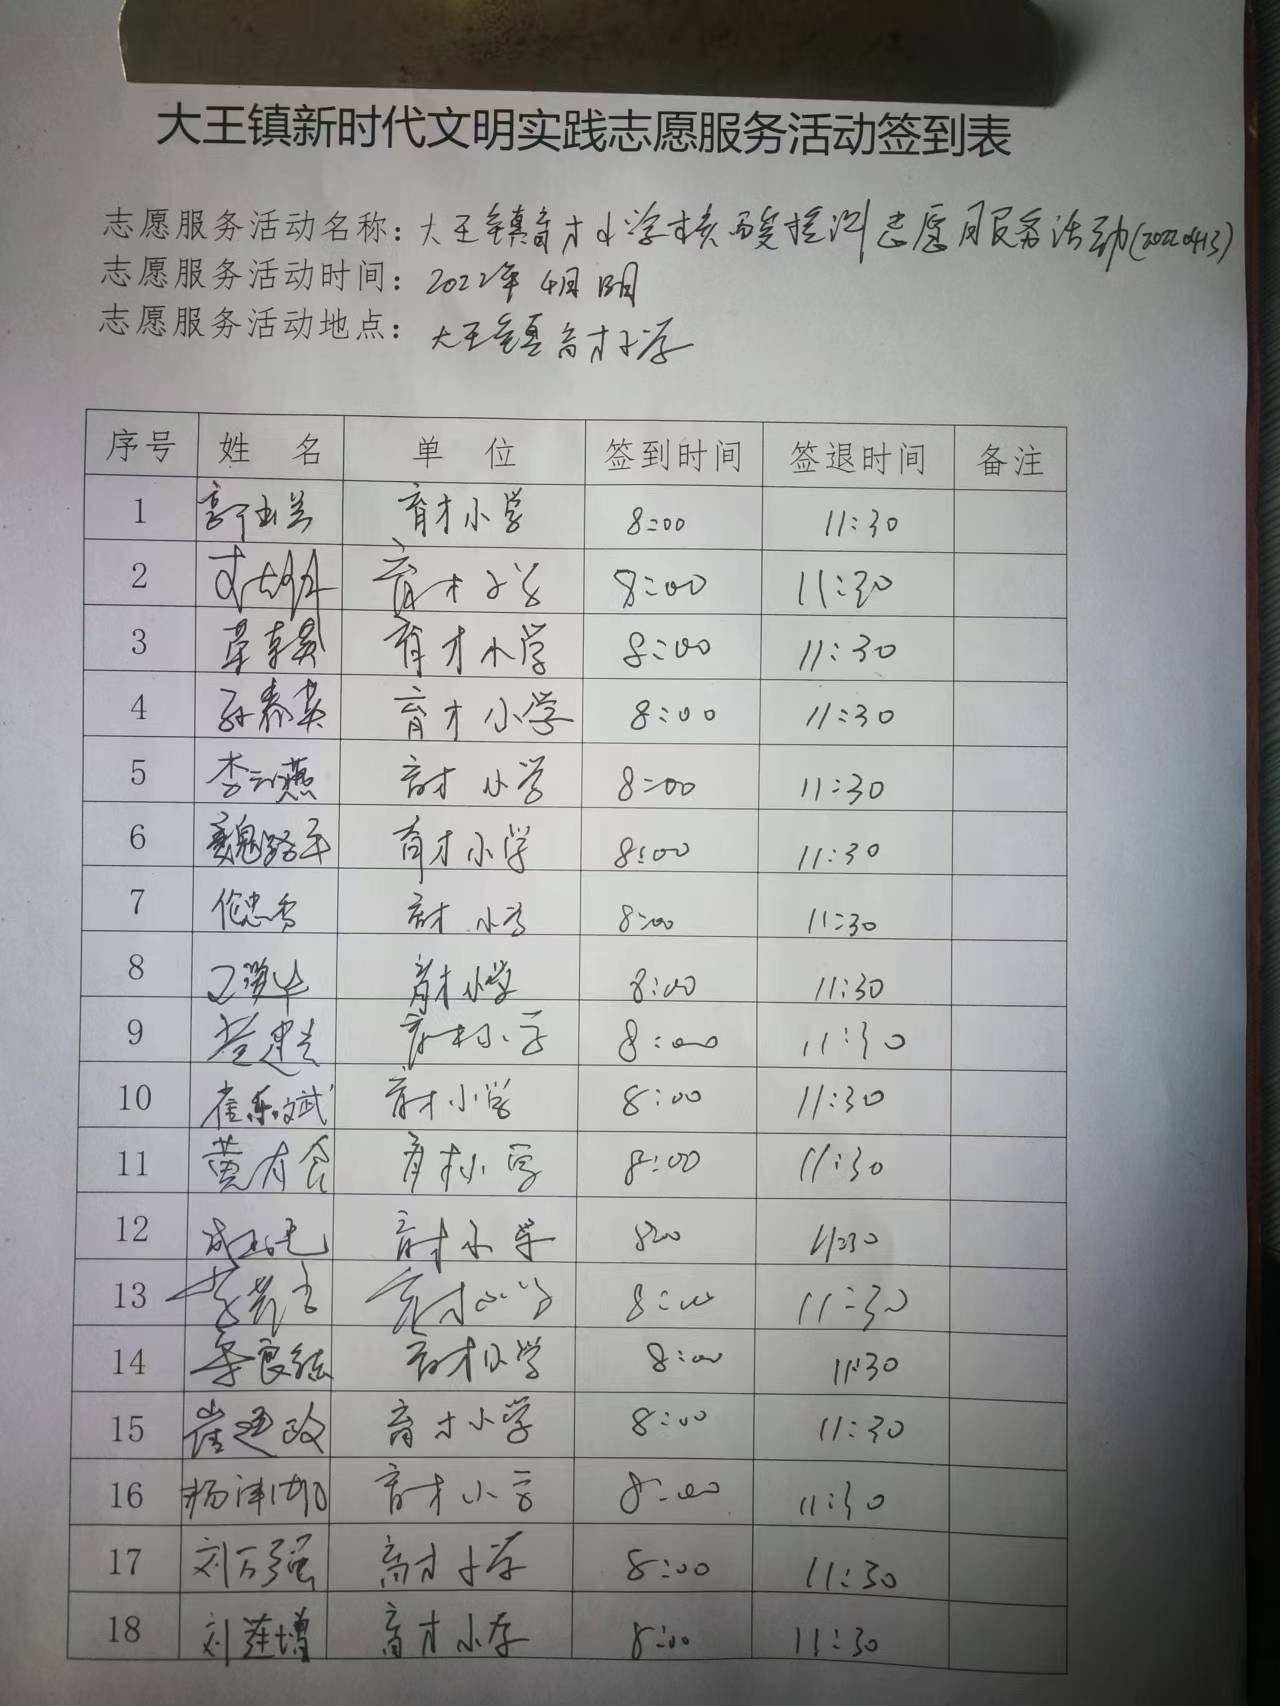 大王镇新时代文明实践志愿服务活动签到表
志愿服务活动名称：大王镇育才小学核酸检测志愿服务活动(20220413)
志愿服务活动时间：2022年4月13日
志愿服务活动地点：大王镇育才小学
序号 姓名 单位 签到时间 签退时间 备注
1 育才小学 8:00 11:30
2 育才小学 8:00 11:30
3 育才小学 8:00 11:30
4 孙春英 育才小学 8:00 11:30
5 李云燕 育才小学 8:00 11:30
6 魏路平 育才小学 8:00 11:30
7 伦忠香 育才小学 8:00 11:30
8 育才小学 8:00 11:30
9 育才小学 8:00 11:30
10 崔东斌 育才小学 8:00 11:30
11 育才小学 8:00 11:30
12 育才小学 8:00 11:30
13 育才小学 8:00 11:30
14 育才小学 8:00 11:30
15 崔建政 育才小学 8:00 11:30
16 育才小学 8:00 11:30
17 刘万强 育才小学 8:00 11:30
18 刘莲增 育才小学 8:00 11:30